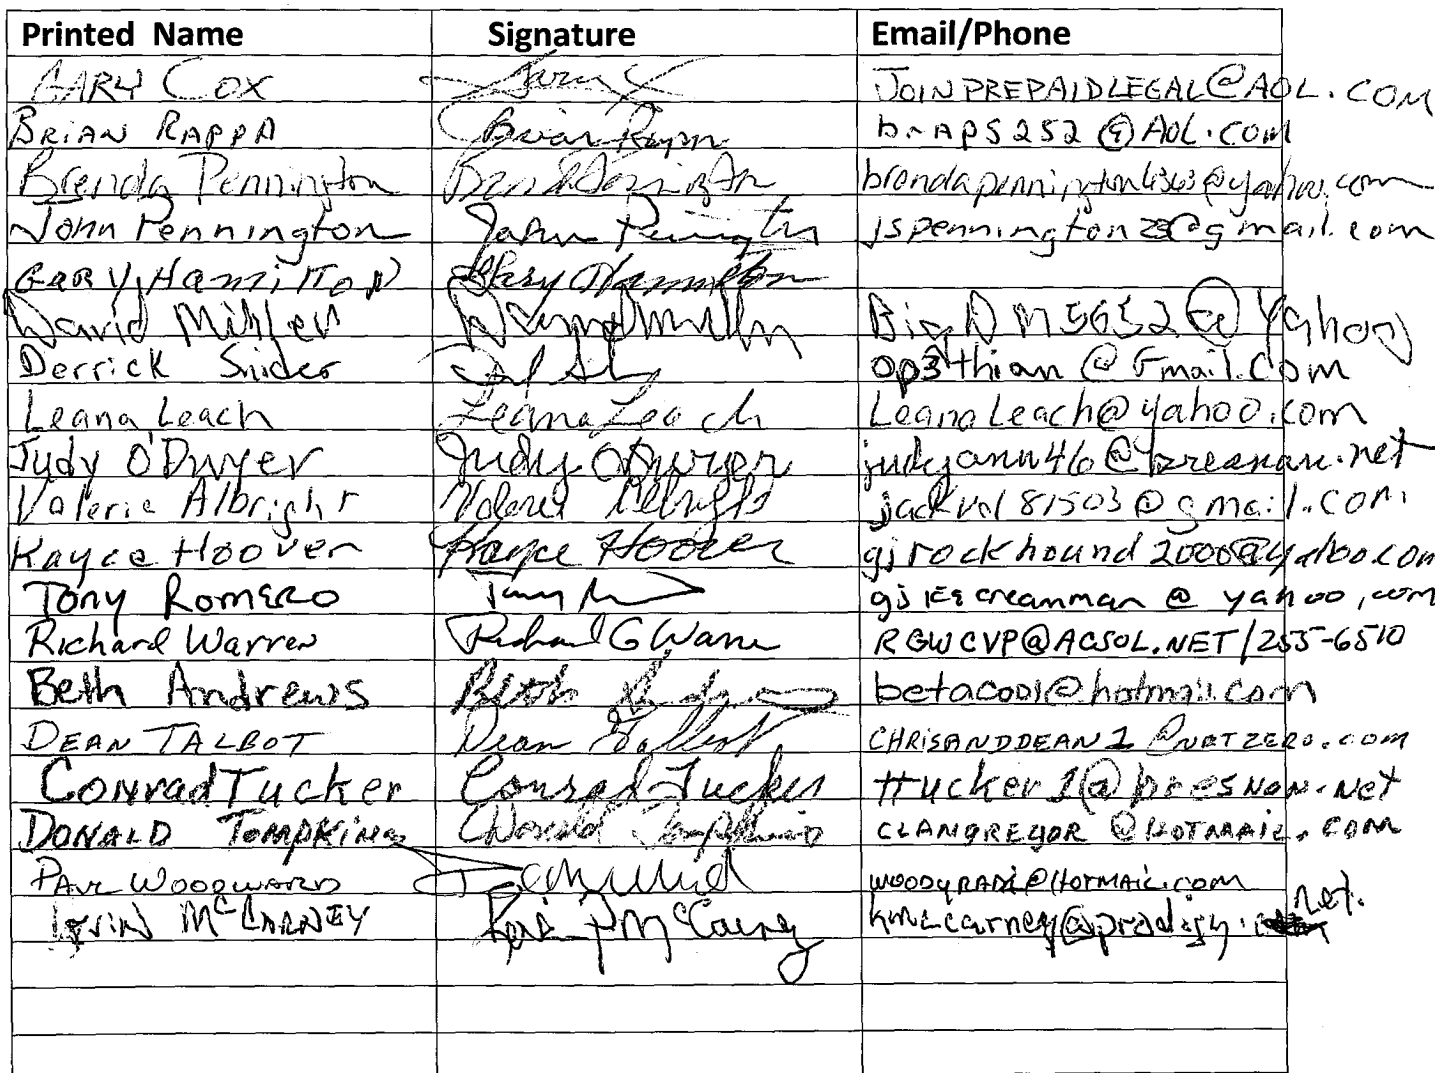 Printed Name Signature Email/Phone
GARY COX Gary Cox JOINPREPAIDLEGAL@AOL.COM
BRIAN RAPPA Brian Rappa braps252@AOL.COM
Brenda Pennington brendapennington4363@yahoo.com
John Pennington John Pennington jspennington28@gmail.com
GARY HAMILTON Gary Hamilton
David Miller BigDM5652@Yahoo
Derrick Snider op3thian@Gmail.Com
Leana Leach Leana Leach LeanaLeach@yahoo.com
Judy O'Dwyer Judy O'Dwyer judyann46@bresnan.net
Valerie Albright Valerie Albright jackval81503@gmail.com
Kayce Hoover Kayce Hoover gjrockhound2000@yahoo.com
Tony Romero gjicecreamman@yahoo.com
Richard Warren Richard G Warren RGWCVP@ACSOL.NET/255-6510
Beth Andrews Beth Andrews betacool@hotmail.com
DEAN TALBOT Dean Talbot CHRISANDDEAN1@NETZERO.com
Conrad Tucker Conrad Tucker ttucker1@bresnan.net
DONALD TOMPKINS Donald Tompkins CLANGREGOR@HOTMAIL.COM
PAUL WOODWARD WOODYRADI@HOTMAIL.COM
KEVIN McCARNEY Kevin P McCarney kmccarney@prodigy.net.